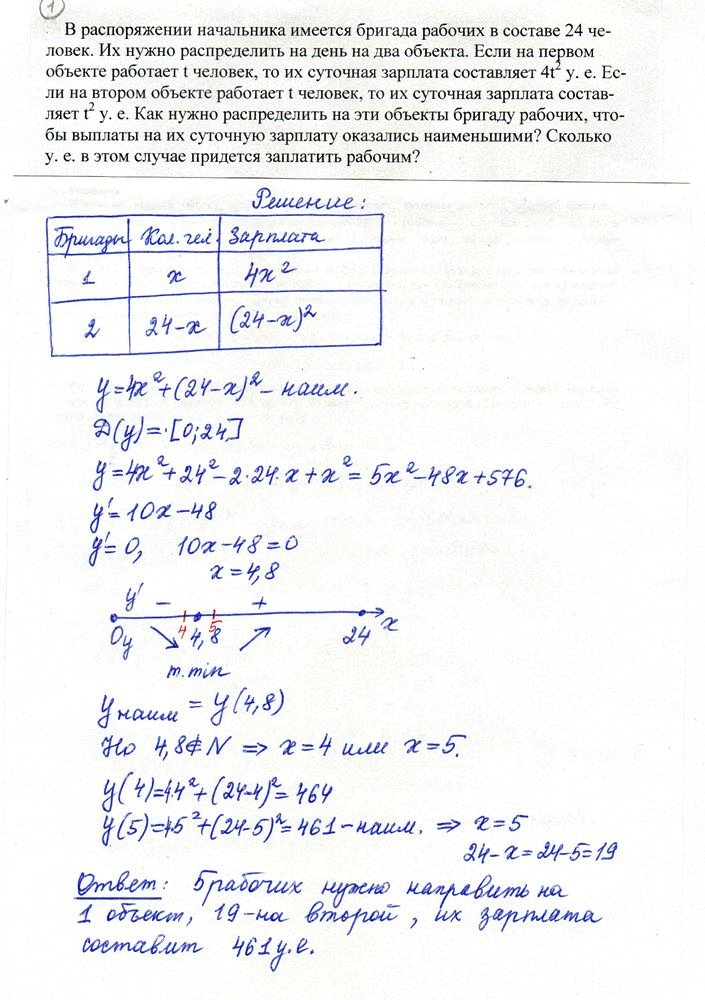 1
В распоряжении начальника имеется бригада рабочих в составе 24 че-
ловек. Их нужно распределить на день на два объекта. Если на первом
объекте работает t человек, то их суточная зарплата составляет 4t² у. е. Ес-
ли на втором объекте работает t человек, то их суточная зарплата состав-
ляет t² у. е. Как нужно распределить на эти объекты бригаду рабочих, что-
бы выплаты на их суточную зарплату оказались наименьшими? Сколько
у. е. в этом случае придется заплатить рабочим?
Решение:
Бригады Кол. чел. Зарплата
1 x 4x²
2 24-x (24-x)²
y=4x²+(24-x)² - наим.
D(y)=[0;24]
y=4x²+24²-2·24·x+x²=5x²-48x+576.
y'=10x-48
y'=0, 10x-48=0
x=4,8
y' - +
0 4 4,8 5 24 x
y
т. min
y наим = y(4,8)
Но 4,8∉N ⇒ x=4 или x=5.
y(4)=4·4²+(24-4)²=464
y(5)=4·5²+(24-5)²=461-наим. ⇒ x=5
24-x=24-5=19
Ответ: 5 рабочих нужно направить на
1 объект, 19-на второй, их зарплата
составит 461 у.е.